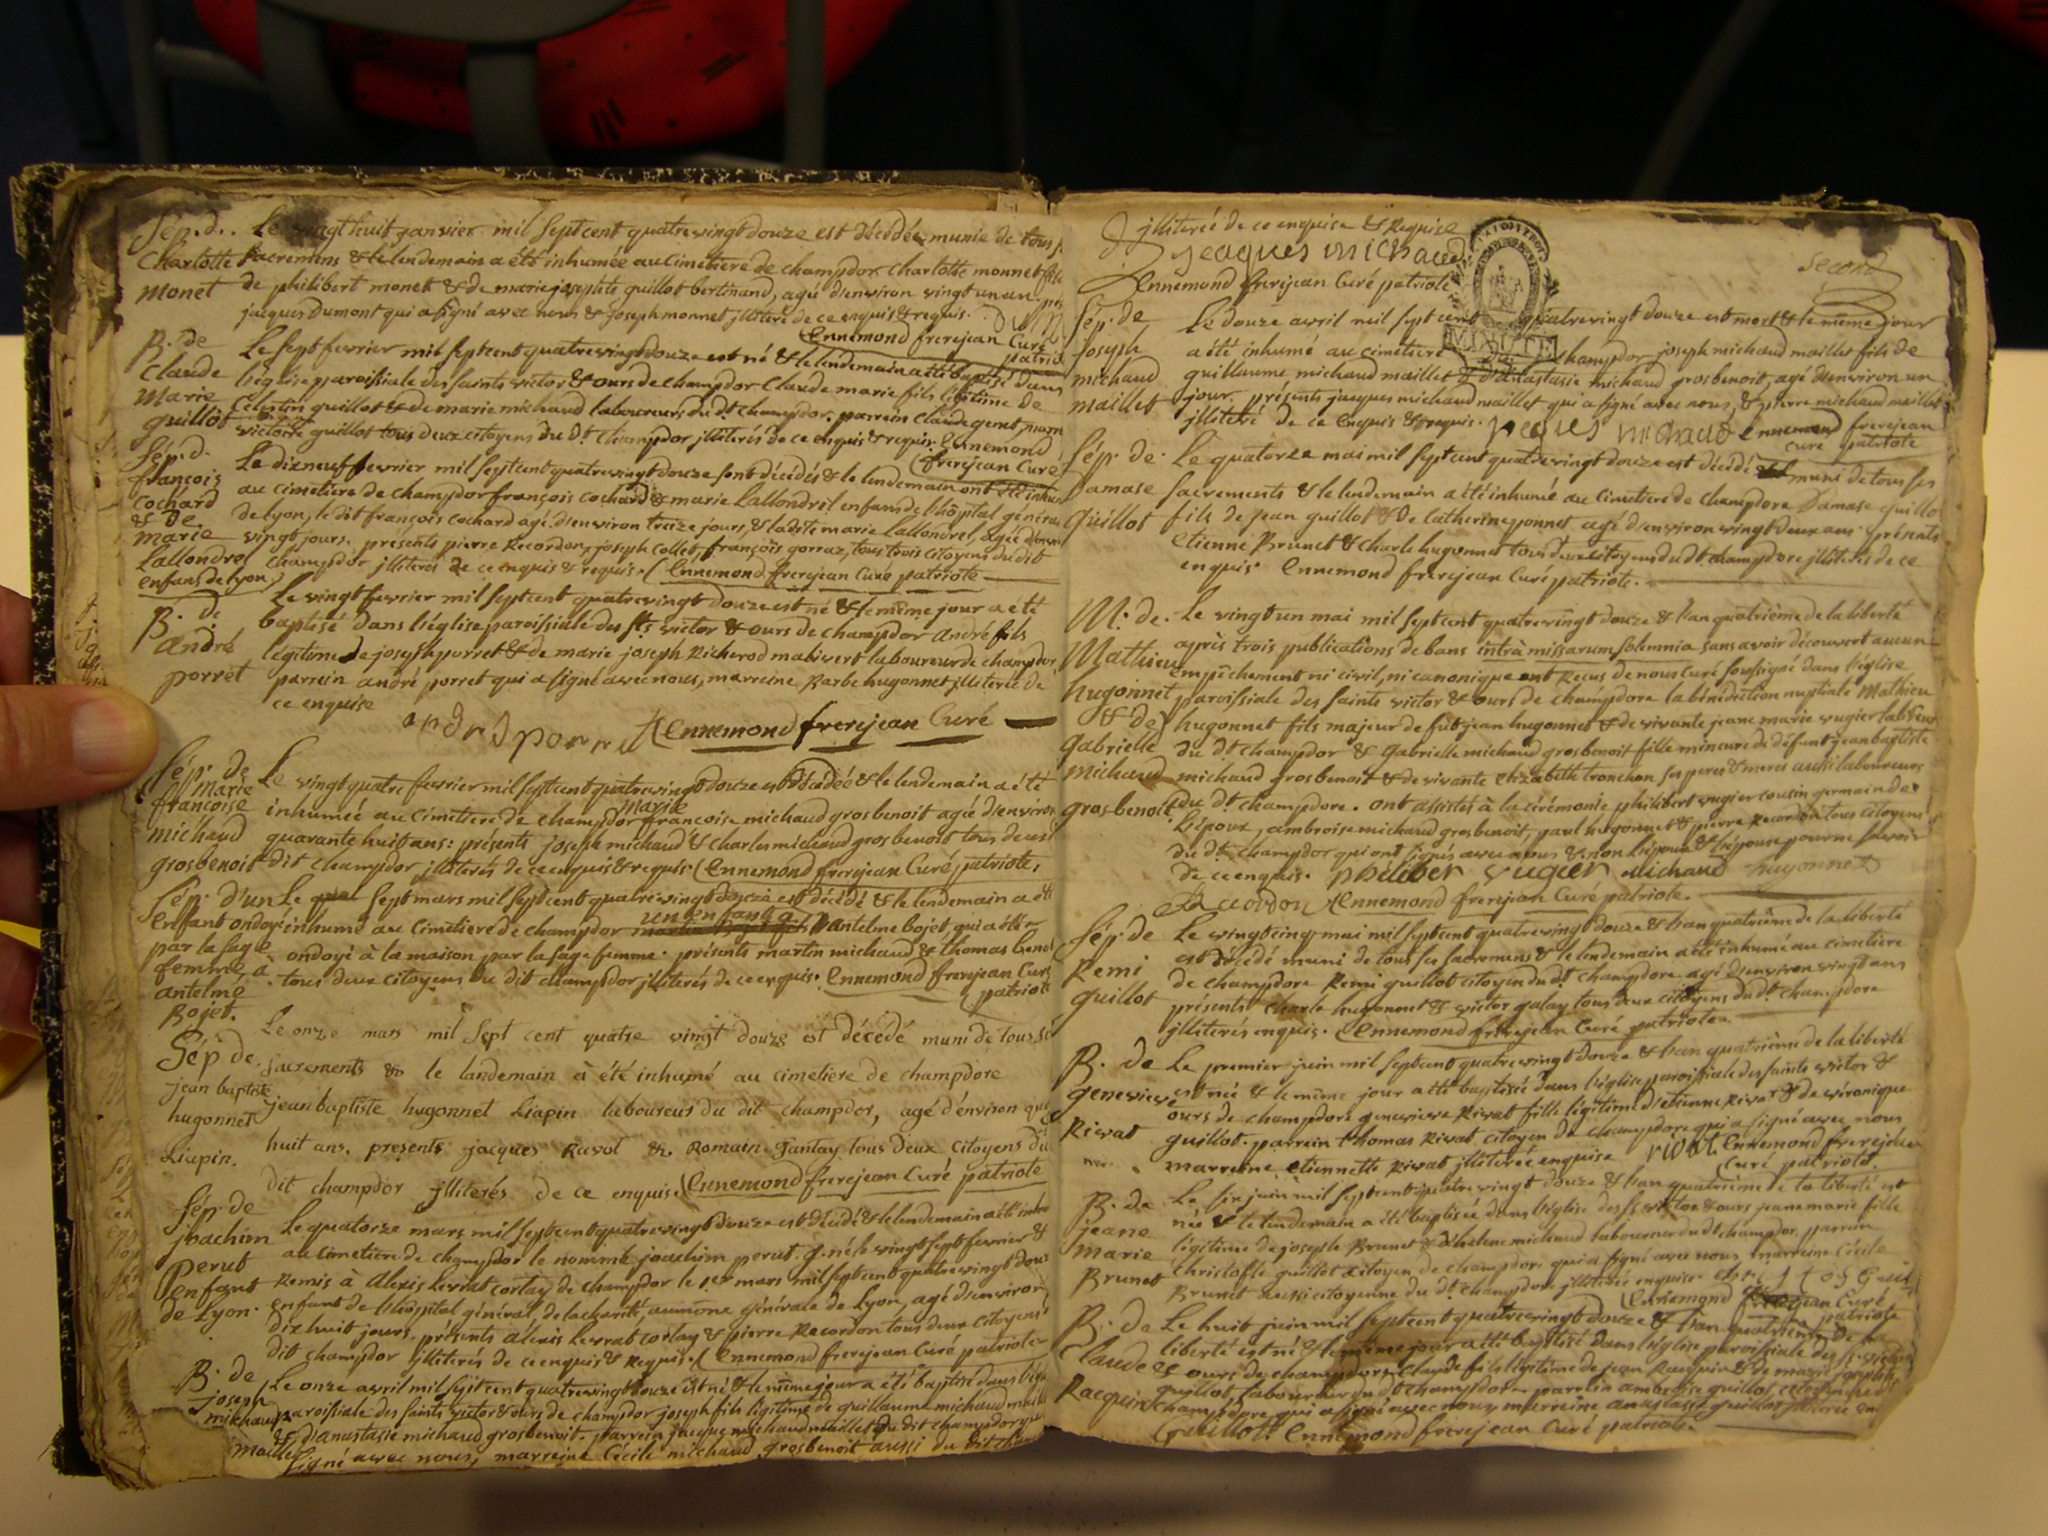 Sép. d.. Le vingt huit janvier mil sept cent quatre vingt douze est décédée munie de tous
Charlotte sacremens & le lendemain a été inhumée au cimetiere de champdor Charlotte monnet
monet de philibert monet & de marie josephte guillot bertinand, agée d'environ vingt un an
jacques Dumont qui a signé avec nous & joseph monnet jlliteré de ce enquis & requis.
Ennemond frerejean Curé
patriote
B. de Le sept fevrier mil sept cent quatre vingt douze est né & le lendemain a été baptisé dans
Claude l'église paroissiale des saints victor & ours de champdor Claude marie fils légitime de
Marie Célestin guillot & de marie michaud laboureurs du dt champdor. parrein Claude genet,
guillot victoire guillot tous deux citoyens du dt champdor jlliterés de ce enquis & requis Ennemond
frerejean Curé
Sép. d. Le dizneuf fevrier mil sept cent quatre vingt douze sont décédés & le lendemain ont été
françois au cimetiere de champdor françois cochard & marie Lallondrel enfans de l'hôpital général
cochard de Lyon, le dit françois cochard agé d'environ treize jours, & la dite marie Lallondrel, agée d'environ
& de
marie vingt jours. présents pierre Recordon, joseph collet, françois gorraz, tous trois citoyens du dit
Lallondrel champdor jlliterés de ce enquis & requis. Ennemond frerejean Curé patriote
enfans de Lyon
B. de Le vingt fevrier mil sept cent quatre vingt douze est né & le même jour a été
André baptisé dans l'église paroissiale des sts victor & ours de champdor André fils
porret légitime de joseph porret & de marie joseph Richerod mativert laboureur de champdor
parrein andré porret qui a signé avec nous, marreine Barbe hugonnet jlliterée de
ce enquise
Ennemond frerejean Curé
Sép. de Le vingt quatre fevrier mil sept cent quatre vingt douze est décédée & le lendemain a été
Marie
francoise inhumée au cimetiere de champdor marie francoise michaud grosbenoit agée d'environ
michaud quarante huit ans: présents joseph michaud & charles michaud grosbenoit tous deux
grosbenoit dit champdor jlliterés de ce enquis & requis Ennemond frerejean Curé patriote,
Sép. d'un Le sept mars mil sept cent quatre vingt douze est décédé & le lendemain a été
Enfant ondoyé inhumé au cimetiere de champdor un enfant à antelme bojet, qui a été
par la sage ondoyé à la maison par la sage femme. présents martin michaud & thomas
femme, à tous deux citoyens du dit champdor jlliterés de ce enquis. Ennemond frerejean Curé
antelme patriote
Bojet.
Sép de Le onze mars mil sept cent quatre vingt douze est décédé muni de tous
jean baptiste sacrements & le landemain à été inhumé au cimetiere de champdore
hugonnet jean baptiste hugonnet Liapin laboureur du dit champdor, agé d'environ
Liapin. huit ans. presents jacques Ravot & Romain Jantay tous deux citoyens du
dit champdor jlliterés de ce enquis Ennemond frerejean Curé patriote
Sép. de Le quatorze mars mil sept cent quatre vingt douze est décédé & le lendemain a été
joachim au cimetiere de champdor le nommé joachim perut. né le vingt sept fevrier &
Perut remis à Alexis Levrat cortay de champdor le 1er mars mil sept cent quatre vingt
enfant enfant de l'hôpital général de la charité, aumone générale de Lyon, agé d'environ
de Lyon. dix huit jours. présents alexis Levrat cortay & pierre Recordon tous deux citoyens
dit champdor jlliterés de ce enquis & requis. Ennemond frerejean Curé patriote
B. de Le onze avril mil sept cent quatre vingt douze est né & le même jour a été baptisé dans
joseph paroissiale des saints victor & ours de champdor joseph fils légitime de guillaume michaud
michaud & d'anastasie michaud grosbenoit. parrein jacque michaud maillet du dit champdor
maillet signé avec nous, marreine Cécile michaud grosbenoit aussi du dit
jlliterée de ce enquise & Requise
jeaques michaud
Ennemond frerejean Curé patriote
second
Sép. de Le douze avril mil sept cent quatre vingt douze est mort & le même jour
Joseph a été inhumé au cimetiere de champdor joseph michaud maillet fils de
michaud guillaume michaud maillet & d'anastasie michaud grosbenoit, agé d'environ un
maillet jour. présents jacques michaud maillet qui a signé avec nous, & pierre michaud maillet
jlliteré de ce enquis & requis. jeques michaud Ennemond frerejean
curé patriote
Sép. de Le quatorze mai mil sept cent quatre vingt douze est décédé muni de tous ses
Damase sacrements & le lendemain a été inhumé au cimetiere de champdore Damase guillot
Guillot fils de jean guillot & de Catherine ponnet agé d'environ vingt deux ans présents
etienne Brunet & Charle hugonnet tous deux citoyens du dt champdore jlliterés de ce
enquis. Ennemond frerejean Curé patriote.
M. de Le vingt un mai mil sept cent quatre vingt douze & l'an quatrième de la liberté
Mathieu après trois publications de bans intrà missarum solemnia sans avoir découvert aucun
hugonnet empêchement ni civil, ni canonique ont Recus de nous Curé soussigné dans l'église
& de paroissiale des saints victor & ours de champdore la bénédiction nuptiale Mathieu
Gabrielle hugonnet fils majeur de fut jean hugonnet & de vivante jeane marie vugier
michaud du dt champdor & Gabrielle michaud grosbenoit fille mineure de défunt jean baptiste
grosbenoit michaud grosbenoit & de vivante Elizabeth tronchon ses peres & meres aussi laboureurs
du dt champdore. ont assistés à la cérémonie philibert vugier cousin germain de
l'époux, ambroise michaud grosbenoit, paul hugonnet & pierre Recordon tous citoyens
du dt champdor qui ont signés avec nous & non l'époux & l'épouse pour ne savoir
de ce enquis. philiber vugier michaud hugonnet
Recordon Ennemond frerejean Curé patriote.
Sép. de Le vingt cinq mai mil sept cent quatre vingt douze & l'an quatrième de la liberté
Remi est décédé muni de tous ses sacremens & le lendemain a été inhumé au cimetiere
guillot de champdore Remi guillot citoyen du dt champdore agé d'environ vingt ans
présents Charle hugonnet & victor galay tous deux citoyens du dt champdore
jlliterés enquis. Ennemond frerejean Curé patriote.
B. de Le premier juin mil sept cent quatre vingt douze & l'an quatrième de la liberté
Genevieve est née & le même jour a été baptisée dans l'église paroissiale des saints victor &
Rivat ours de champdore genevieve Rivat fille légitime d'etienne Rivat & de véronique
guillot. parrein thomas Rivat citoyen de champdore qui a signé avec nous
marreine etiennette Rivat jlliterée enquise rivat Ennemond frerejean
Curé patriote.
B. de Le six juin mil sept cent quatre vingt douze & l'an quatrième de la liberté est
jeane née & le lendemain a été baptisée dans l'église des Sts victor & ours jeane marie fille
marie légitime de joseph Brunet & d'helene michaud laboureur du dt champdor, parrein
Brunet christofle guillot citoyen de champdore qui a signé avec nous, marreine Cécile
Brunet aussi citoyenne du dt champdore jlliterée enquise
Ennemond frerejean Curé
patriote
B. de Le huit juin mil sept cent quatre vingt douze & l'an quatrième de la
Claude liberté est né & le même jour a été baptisé dans l'église paroissiale des st. victor
Racquin & ours de champdore Claude fils légitime de jean Racquin & de marie josephte
guillot, laboureur du dt champdore parrein ambroise guillot, citoyen de
champdore qui a signé avec nous marreine anastasie guillot jlliterée
Guillot. Ennemond frerejean Curé patriote.